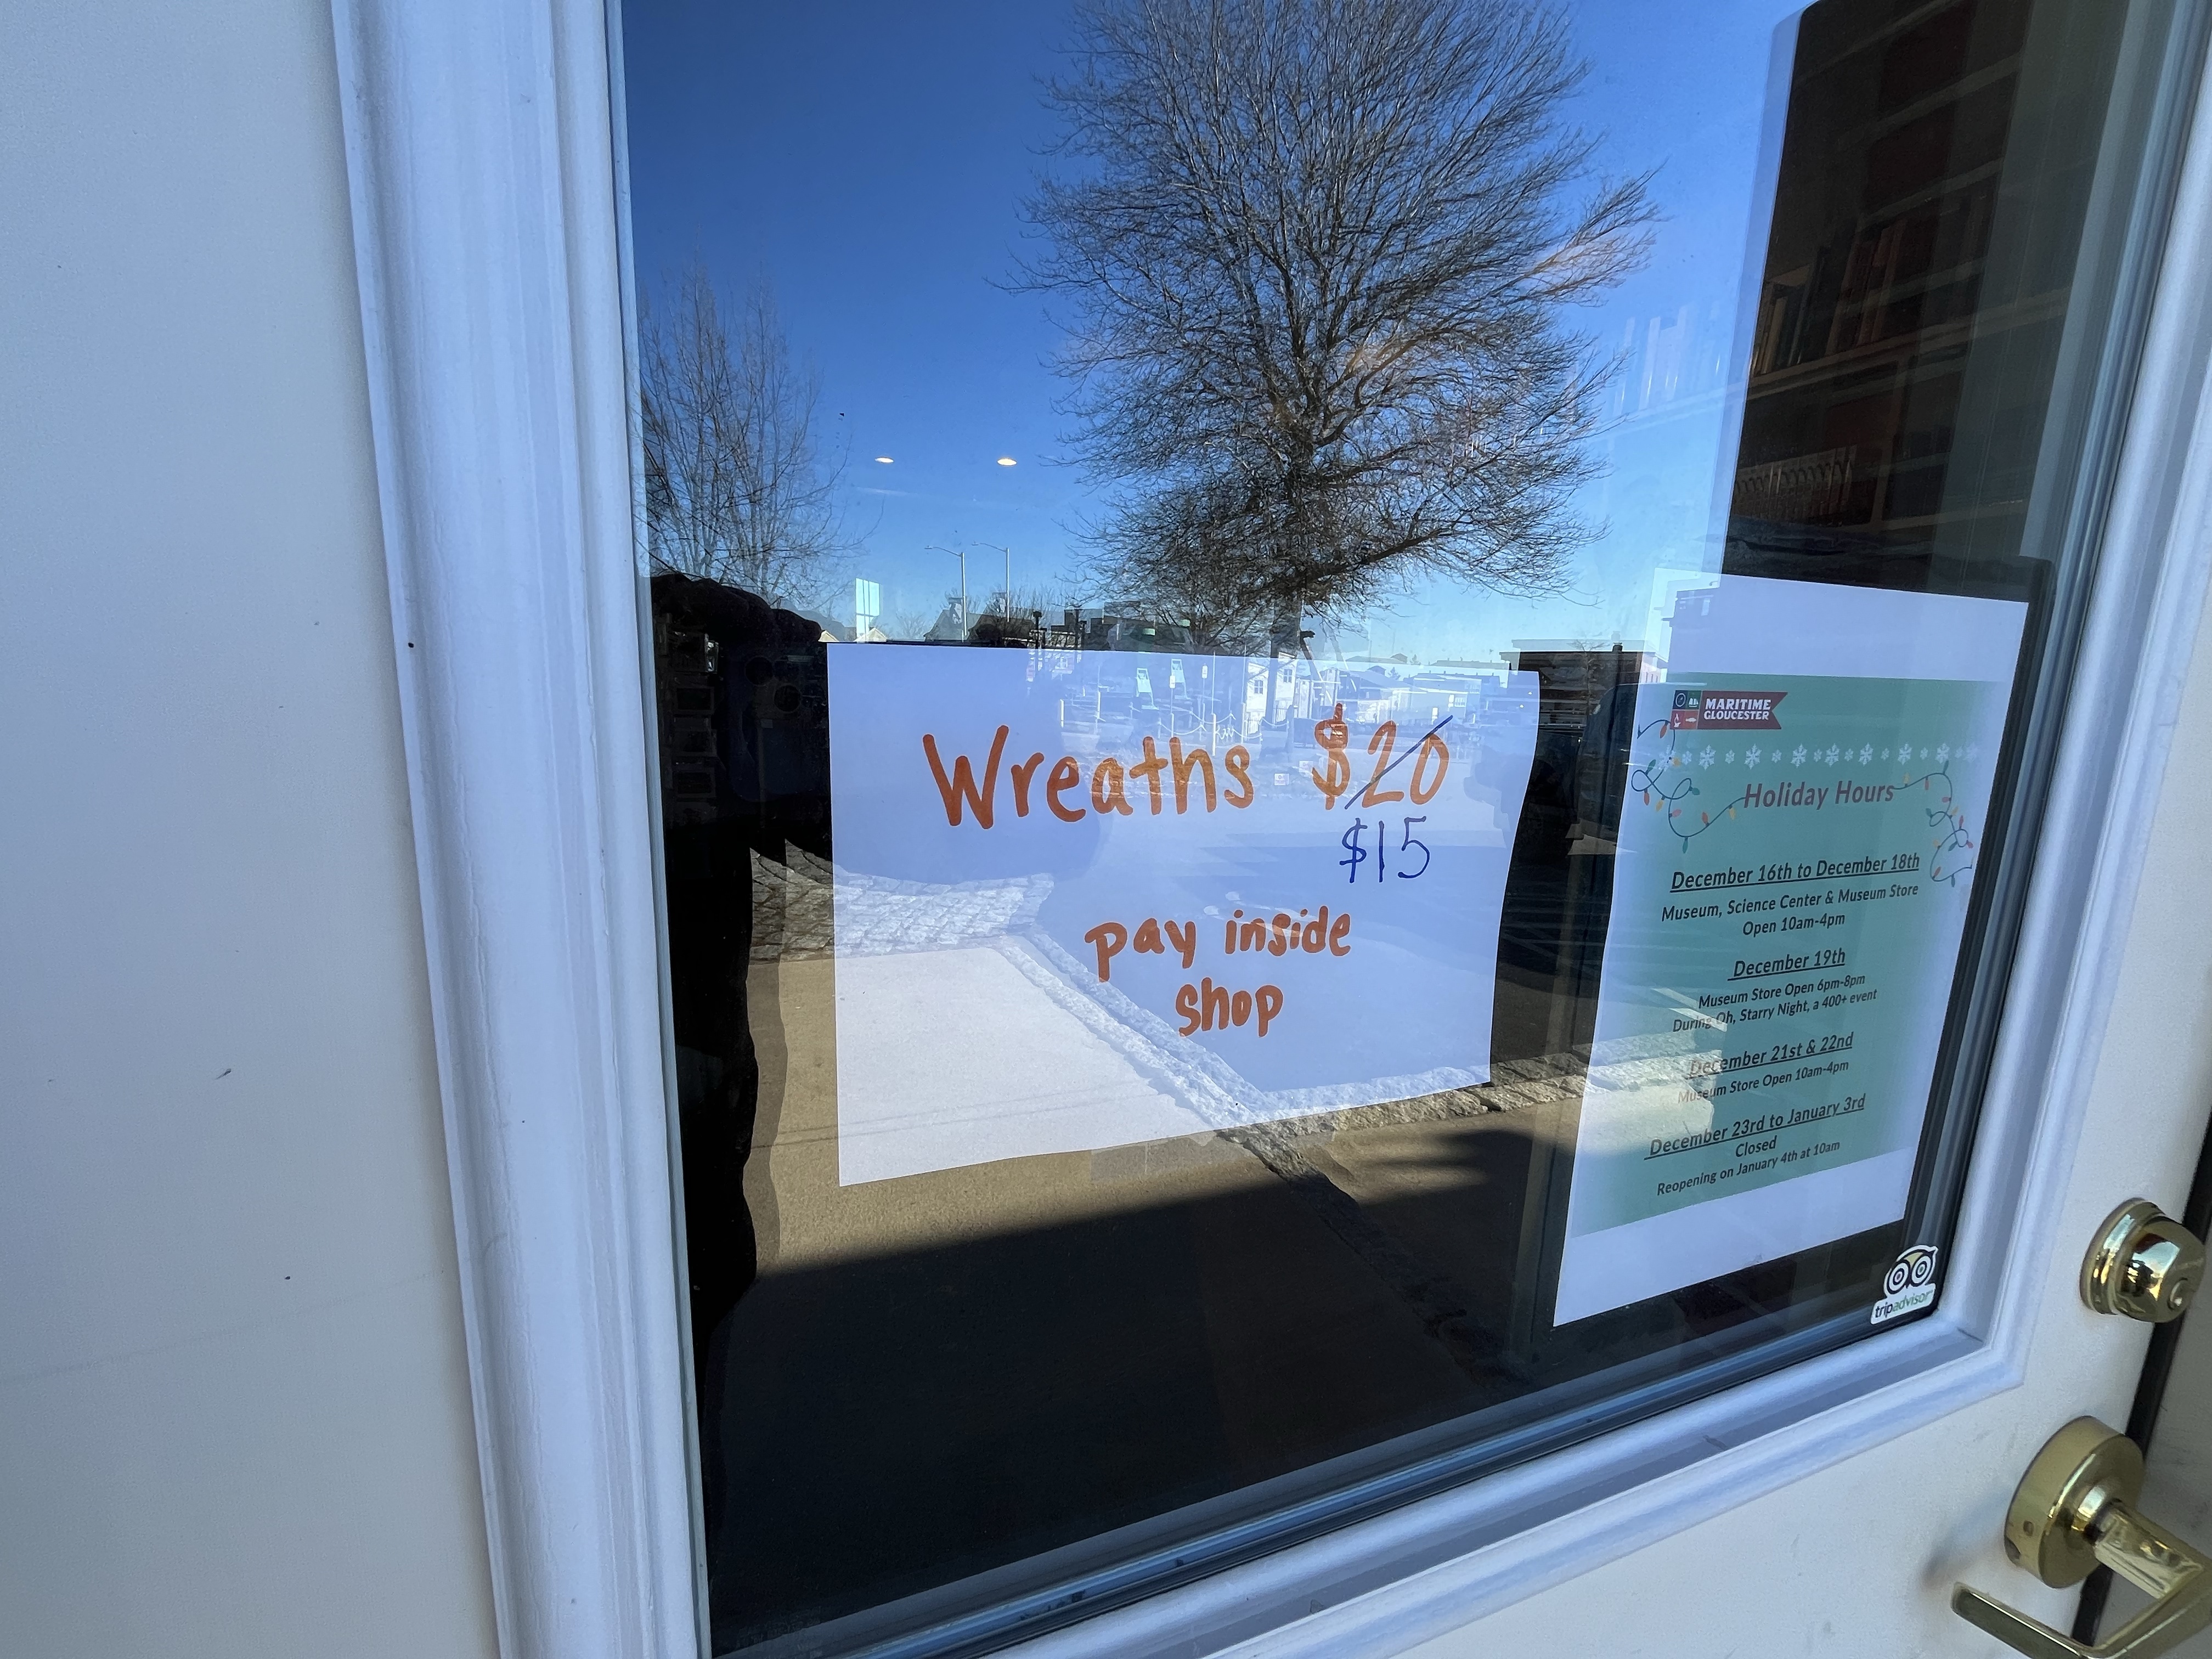 Wreaths $20
$15
pay inside
shop
MARITIME
GLOUCESTER
Holiday Hours
December 16th to December 18th
Museum, Science Center & Museum Store
Open 10am-4pm
December 19th
Museum Store Open 6pm-8pm
During Oh, Starry Night, a 400+ event
December 21st & 22nd
Museum Store Open 10am-4pm
December 23rd to January 3rd
Closed
Reopening on January 4th at 10am
tripadvisor